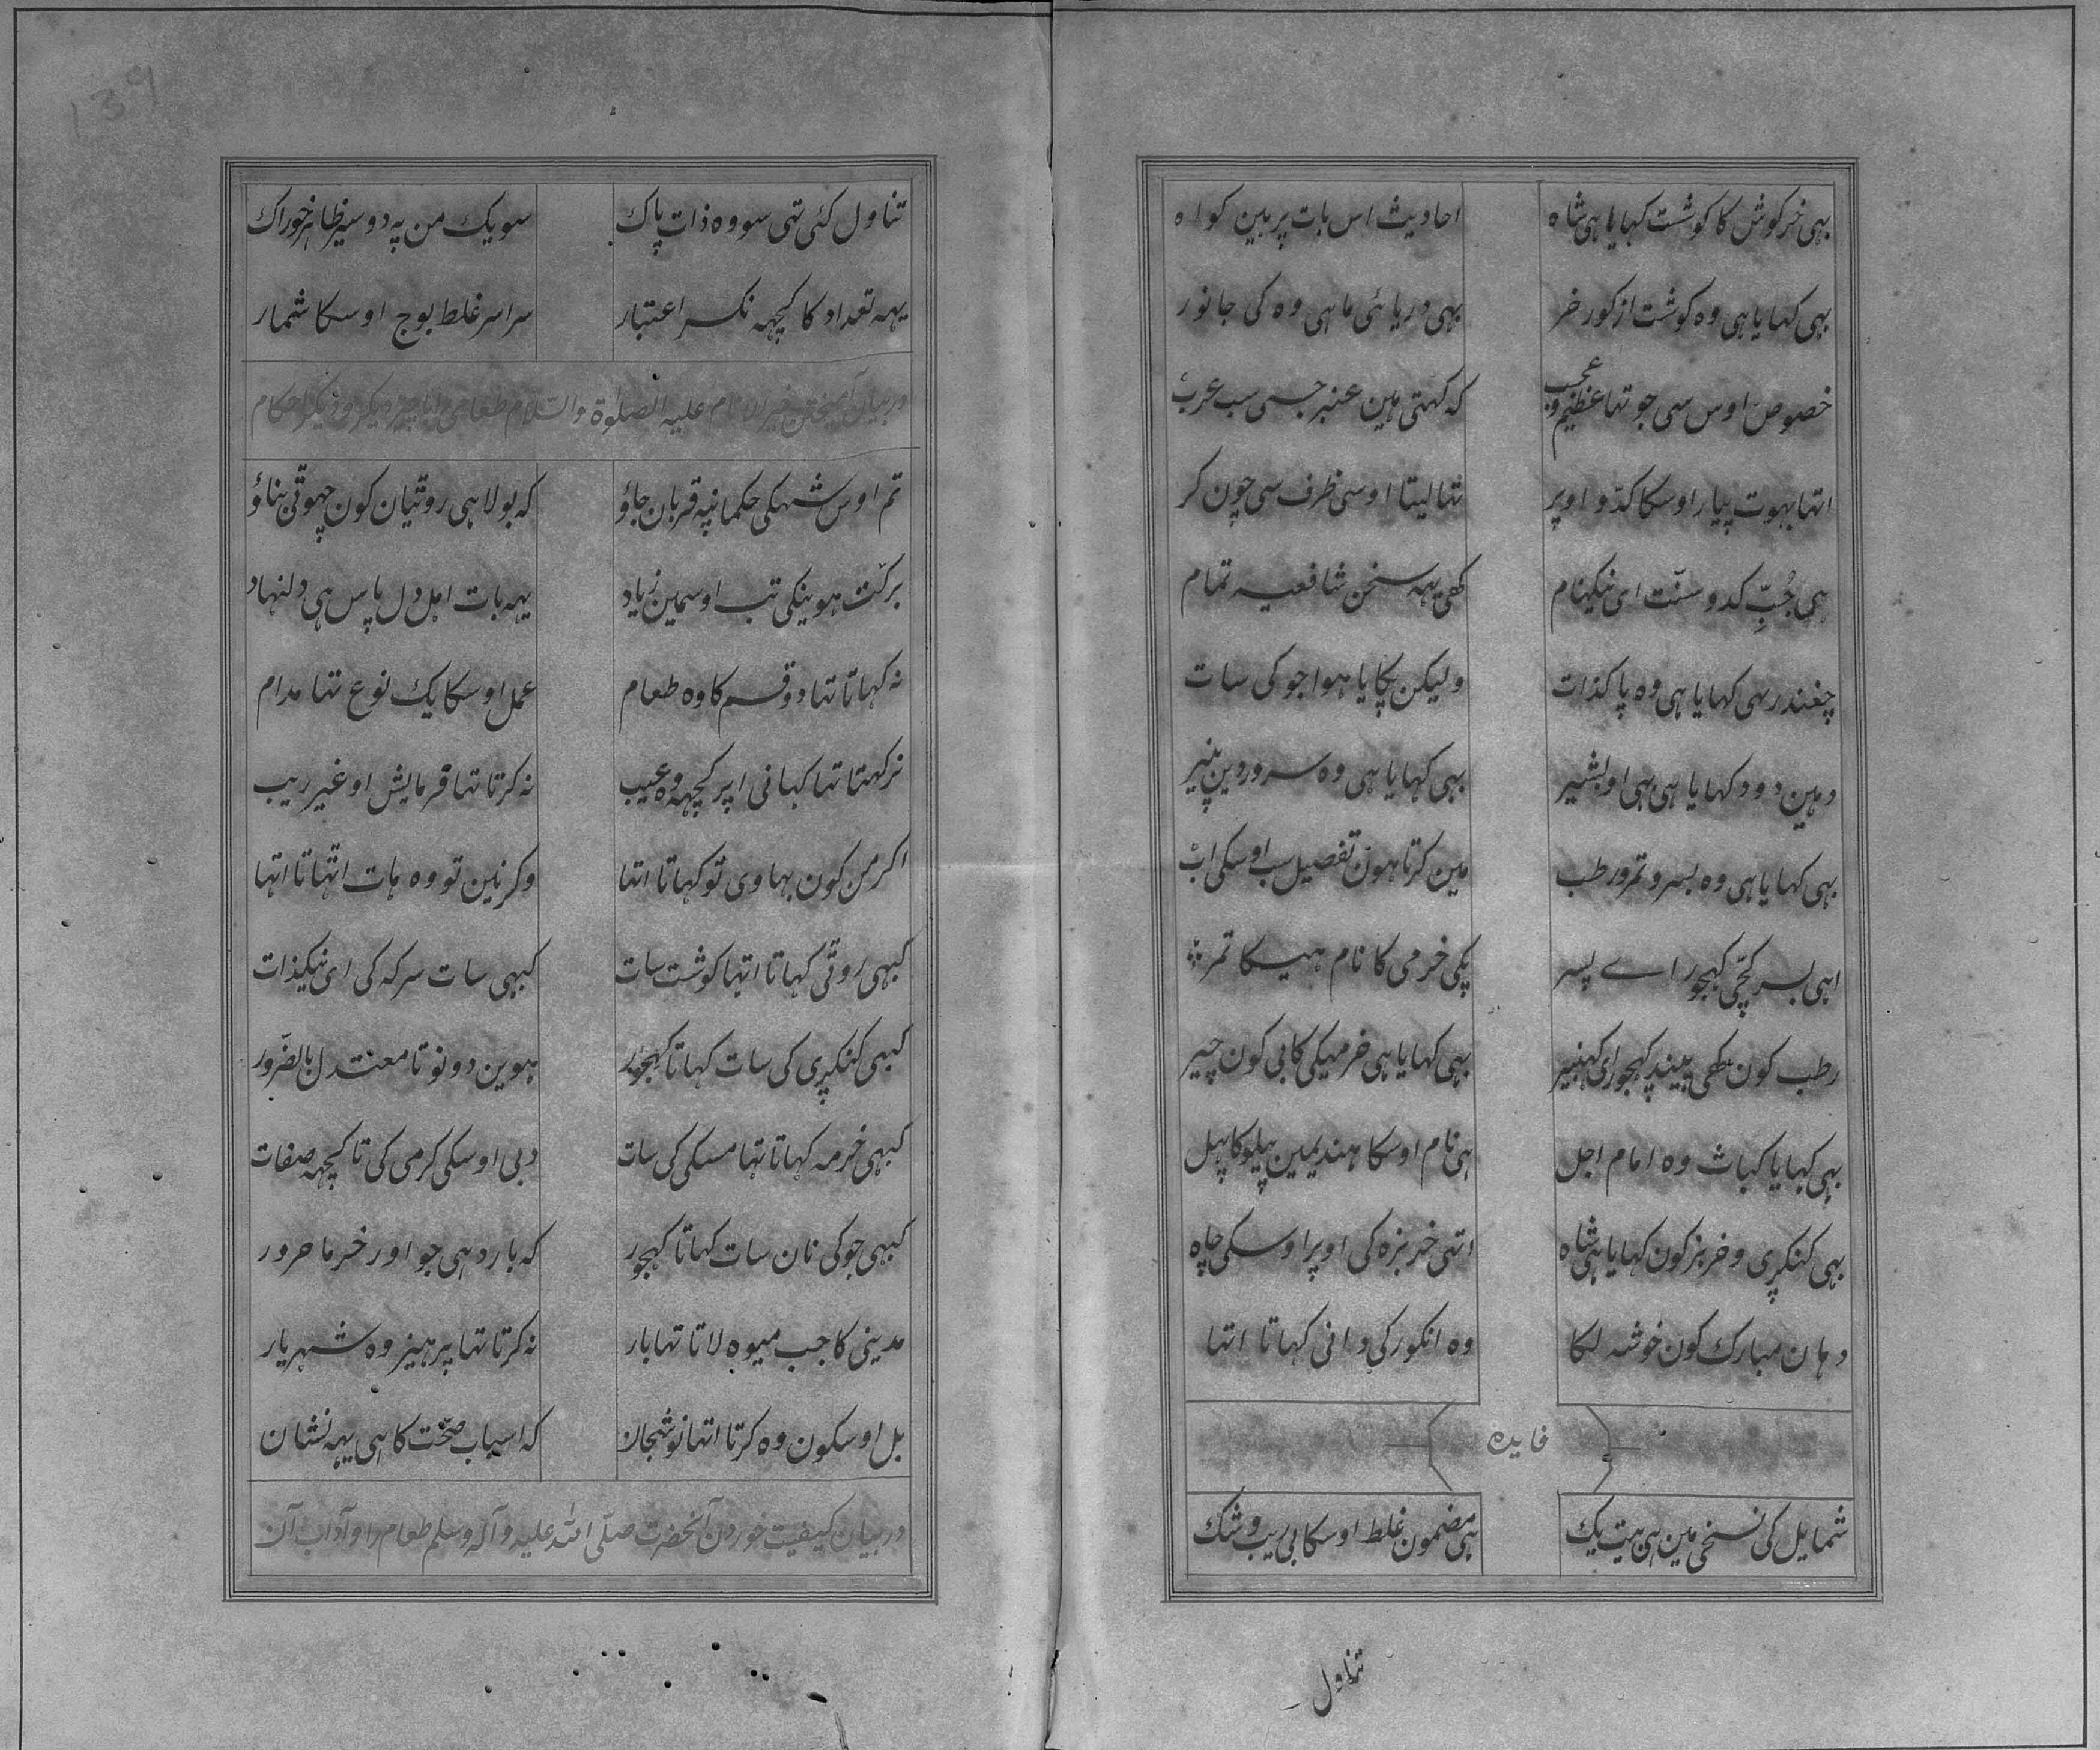 بہی خرکوش کا کوشت کہایا ہی شاہ احادیث اس بات پر ہین کواہ
بہی کہایا ہی وہ کوشت از کور خر بہی دریائی ماہی وہ کی جانور
خصوص اوس سی جو تہا عظیم و عجب کہ کہتی ہین عنبر جسی سب عرب
اتہا بہوت پیار اوسکا کدّو اوپر تہا لیتا اوسی ظرف سی چون کر
ہی حُبِّ کدو سنّت ای نیکنام کھی یہہ سخن شافعیہ تمام
چغندر بہی کہایا ہی وہ پاکذات ولیکن پچایا ہوا جو کی سات
دہین دود کہایا ہی بہی او بشیر بہی کہایا ہی وہ سرور دین پنیر
بہی کہایا ہی وہ بسر و تمر و رطب مین کرتا ہون تفصیل سب اوسکی اب
اہی بسر کچّی کہجور اے پسر پکی خرمی کا نام ہیکا تمر
رطب کون کھی پیند کہجور ای کہنیر بہی کہایا ہی خرمیکی کابی کون چیر
بہی کہایا کباث وہ امام اجل ہی نام اوسکا ہندیمین پیلو کا پہل
بہی کنکڑی و خربز کون کہایا ہی شاہ اتہی خربزہ کی اوپر اوسکی چاہ
دہان مبارک کون خوشہ لکا وہ انکور کی دانی کہاتا اتہا
فایدہ
شمایل کی نسخی مین ہی بیت یک ہی مضمون غلط اوسکا بی ریب و شک
تناول
تناول کئی تہی سو وہ ذات پاک سو یک من پہ دو سیر ظاہر خوراک
یہہ تعداد کا کچہہ نکر اعتبار سراسر غلط بوج اوسکا شمار
در بیان آمیختن خیر الانام علیہ الصلوٰة والسّلام طعامی را با چیز دیکر و دیکر احکام
تم اوس شہکی حکمانپہ قربان جاؤ کہ بولا ہی روتیان کون چہوتی بناؤ
برکت ہوینکی تب اوسمین زیاد یہہ بات اہل دل پاس ہی دلنہاد
نہ کہاتا تہا دو قسم کا وہ طعام عمل اوسکا یک نوع تہا مدام
نرکہتا تہا کہانی اپر کچہہ وہ عیب نہ کرتا تہا فرمایش او غیر ریب
اکر من کون بہاوی تو کہاتا اتہا وکر نین تو وہ ہات اتہاتا اتہا
کبہی روتی کہاتا اتہا کوشت سات کبہی سات سرکہ کی ای نیکذات
کبہی کنکڑی کی سات کہاتا کہجور ہوین دونو تا معتدل بالضّرور
کبہی خرمہ کہاتا تہا مسکی کی سات دبی اوسکی کرمی کی تا کچہہ صفات
کبہی جو کی نان سات کہاتا کہجور کہ بارد ہی جو اور خرما حرور
مدینی کا جب میوہ لاتا تہا بار نہ کرتا تہا پرہیز وہ شہریار
بل اوسکون وہ کرتا اتہا نوشجان کہ اسباب صحّت کا ہی یہہ نشان
در بیان کیفیت خوردن آنحضرت صلّی اللہ علیہ وآلہ وسلم طعام را و آداب آن